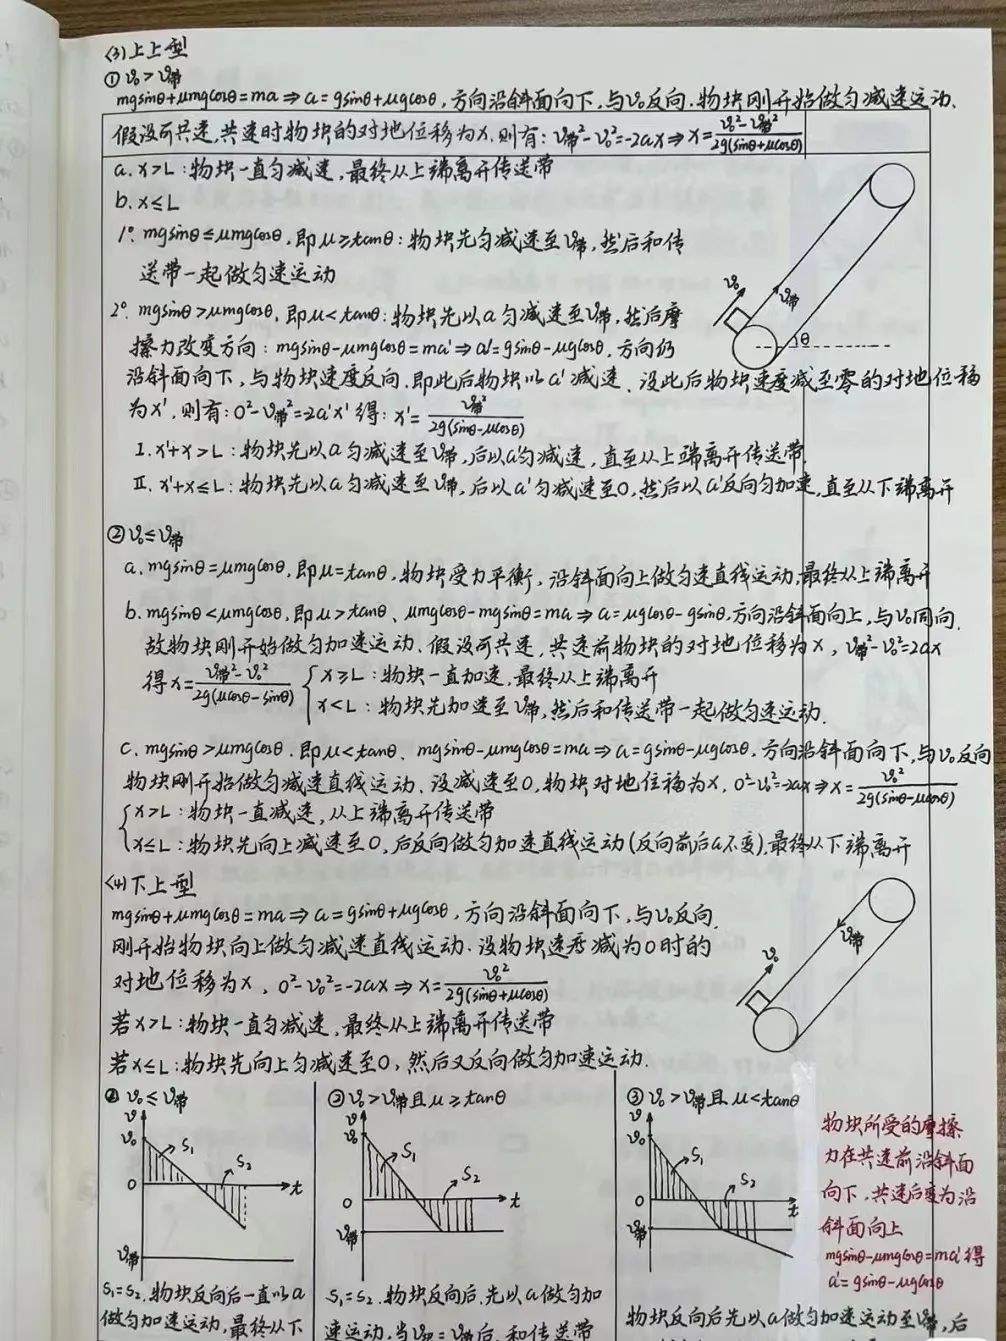 (3)上上型
① v₀>v带
mgsinθ+μmgcosθ=ma⇒a=gsinθ+μgcosθ,方向沿斜面向下,与v₀反向.物块刚开始做匀减速运动.
假设可共速,共速时物块的对地位移为x.则有:v带²-v₀²=-2ax⇒x=(v₀²-v带²)/2g(sinθ+μcosθ)
a. x>L:物块一直匀减速,最终从上端离开传送带
b. x≤L
1°. mgsinθ≤μmgcosθ,即μ≥tanθ:物块先匀减速至v带,然后和传
送带一起做匀速运动
2°. mgsinθ>μmgcosθ,即μ<tanθ:物块先以a匀减速至v带,然后摩
擦力改变方向:mgsinθ-μmgcosθ=ma'⇒a'=gsinθ-μgcosθ.方向仍
沿斜面向下,与物块速度反向.即此后物块以a'减速.设此后物块速度减至零的对地位移
为x',则有:0²-v带²=-2a'x'得:x'=v带²/2g(sinθ-μcosθ)
I. x'+x>L:物块先以a匀减速至v带,后以a'匀减速,直至从上端离开传送带.
II. x'+x≤L:物块先以a匀减速至v带,后以a'匀减速至0,然后以a'反向匀加速,直至从下端离开
v₀
v带
θ
② v₀≤v带
a. mgsinθ=μmgcosθ,即μ=tanθ,物块受力平衡,沿斜面向上做匀速直线运动,最终从上端离开
b. mgsinθ<μmgcosθ,即μ>tanθ、μmgcosθ-mgsinθ=ma⇒a=μgcosθ-gsinθ,方向沿斜面向上,与v₀同向.
故物块刚开始做匀加速运动.假设可共速,共速前物块的对地位移为x,v带²-v₀²=2ax
得x=(v带²-v₀²)/2g(μcosθ-sinθ) { x≥L:物块一直加速,最终从上端离开
x<L:物块先加速至v带,然后和传送带一起做匀速运动.
c. mgsinθ>μmgcosθ.即μ<tanθ、mgsinθ-μmgcosθ=ma⇒a=gsinθ-μgcosθ,方向沿斜面向下,与v₀反向
物块刚开始做匀减速直线运动、设减速至0,物块对地位移为x,0²-v₀²=-2ax⇒x=v₀²/2g(sinθ-μcosθ)
{ x>L:物块一直减速,从上端离开传送带
x≤L:物块先向上减速至0,后反向做匀加速直线运动(反向前后a不变),最终从下端离开
(4)下上型
mgsinθ+μmgcosθ=ma⇒a=gsinθ+μgcosθ,方向沿斜面向下,与v₀反向.
刚开始物块向上做匀减速直线运动.设物块速度减为0时的
对地位移为x,0²-v₀²=-2ax⇒x=v₀²/2g(sinθ+μcosθ)
若x>L:物块一直匀减速,最终从上端离开传送带
若x≤L:物块先向上匀减速至0,然后又反向做匀加速运动.
v₀
v带
① v₀≤v带
v
v₀
S₁
S₂
0
t
v带
S₁=S₂.物块反向后一直以a
做匀加速运动,最终从下
② v₀>v带且μ≥tanθ
v
v₀
S₁
S₂
0
t
v带
S₁=S₂.物块反向后,先以a做匀加
速运动,当v物=v带后,和传送带
③ v₀>v带且μ<tanθ
v
v₀
S₁
S₂
0
t
v带
物块反向后先以a做匀加速运动至v带,后
物块所受的摩擦
力在共速前沿斜面
向下,共速后变为沿
斜面向上
mgsinθ-μmgcosθ=ma'得
a'=gsinθ-μgcosθ